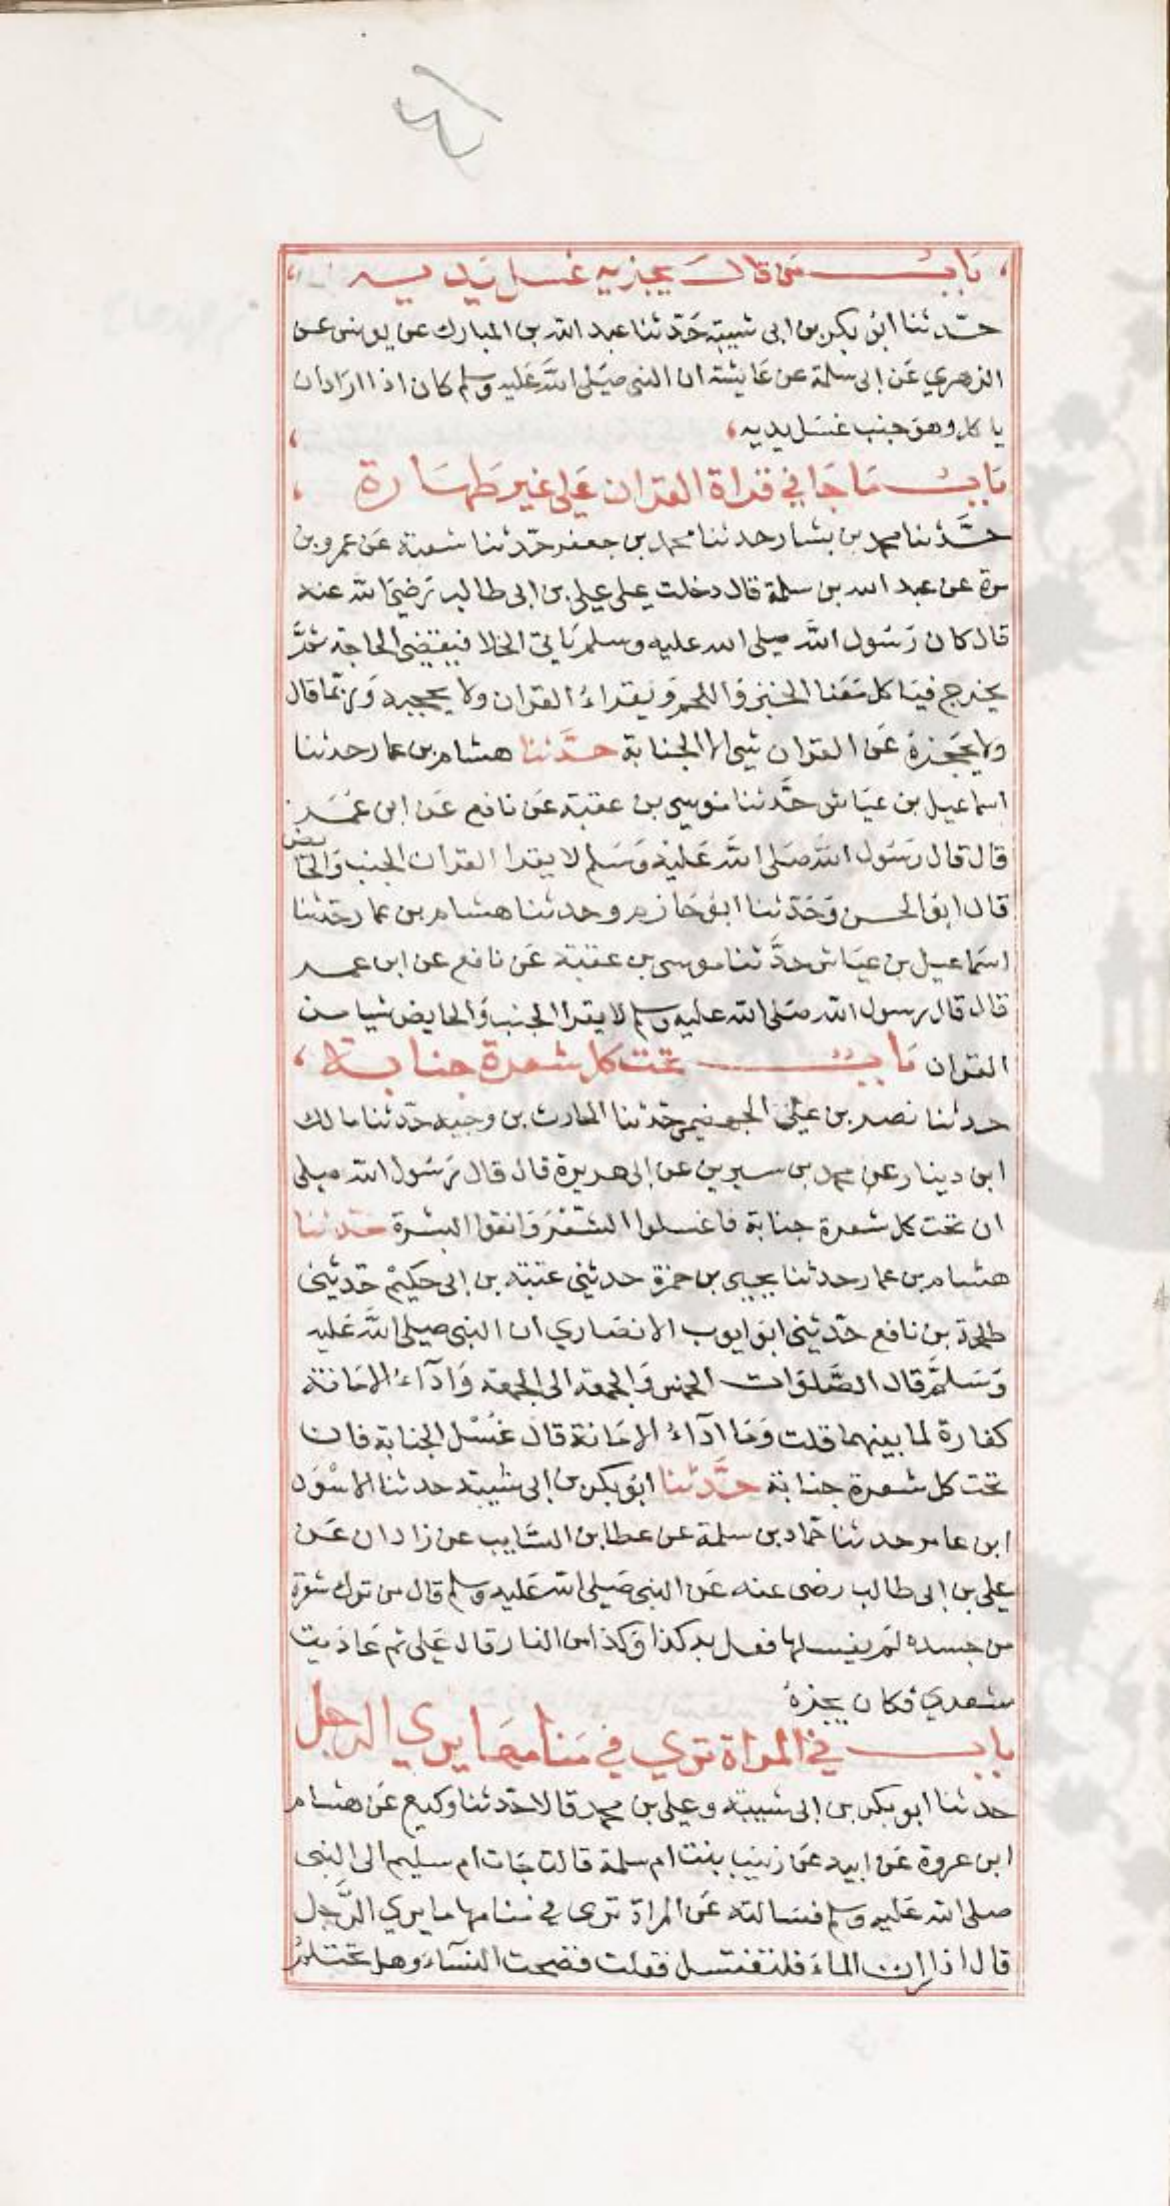 باب من قال يجزيه غسل يديه
حدثنا ابو بكر بن ابى شيبة حدثنا عبد الله بن المبارك عن يونس عن
الزهري عن ابى سلمة عن عايشة ان النبى صلى الله عليه وسلم كان اذا اراد ان
ياكل وهو جنب غسل يديه
باب ما جا في قراة القران على غير طهارة
حدثنا محمد بن بشار حدثنا محمد بن جعفر حدثنا شعبة عن عمرو بن
مرة عن عبد الله بن سلمة قال دخلت على علي بن ابى طالب رضي الله عنه
قال كان رسول الله صلى الله عليه وسلم ياتي الخلا فيقضي الحاجة ثم
يخرج فياكل معنا الخبز واللحم ويقراء القران ولا يحجبه وربما قال
ولا يحجزه عن القران شي الا الجنابة حدثنا هشام بن عمار حدثنا
اسماعيل بن عياش حدثنا موسى بن عقبة عن نافع عن ابن عمر
قال قال رسول الله صلى الله عليه وسلم لا يقرا القران الجنب والحايض
قال ابو الحسن وحدثنا ابو حازم وحدثنا هشام بن عمار حدثنا
اسماعيل بن عياش حدثنا موسى بن عقبة عن نافع عن ابن عمر
قال قال رسول الله صلى الله عليه وسلم لا يقرا الجنب والحايض شيا من
القران باب تحت كل شعرة جنابة
حدثنا نصر بن علي الجهضمي حدثنا الحارث بن وجيه حدثنا مالك
ابن دينار عن محمد بن سيرين عن ابى هريرة قال قال رسول الله صلى
ان تحت كل شعرة جنابة فاغسلوا الشعر وانقوا البشرة حدثنا
هشام بن عمار حدثنا يحيى بن حمزة حدثنى عتبة بن ابى حكيم حدثني
طلحة بن نافع حدثني ابو ايوب الانصاري ان النبى صلى الله عليه
وسلم قال الصلوات الخمس والجمعة الى الجمعة واداء الامانة
كفارة لما بينهما قلت وما اداء الامانة قال غسل الجنابة فان
تحت كل شعرة جنابة حدثنا ابو بكر بن ابى شيبة حدثنا الاسود
ابن عامر حدثنا حماد بن سلمة عن عطا بن السايب عن زادان عن
علي بن ابى طالب رضى عنه عن النبى صلى الله عليه وسلم قال من ترك شعرة
من جسده لم يغسلها فعل به كذا وكذا من النار قال علي ثم عاديت
شعري فكان يجزه
باب في المراة تري في منامها يري الرجل
حدثنا ابو بكر بن ابى شيبة وعلي بن محمد قالا حدثنا وكيع عن هشام
ابن عروة عن ابيه عن زينب بنت ام سلمة قالت جات ام سليم الى النبى
صلى الله عليه وسلم فسالته عن المراة ترى في منامها ما يري الرجل
قال اذا رات الماء فلتغتسل فقلت فضحت النساء وهل تحتلم